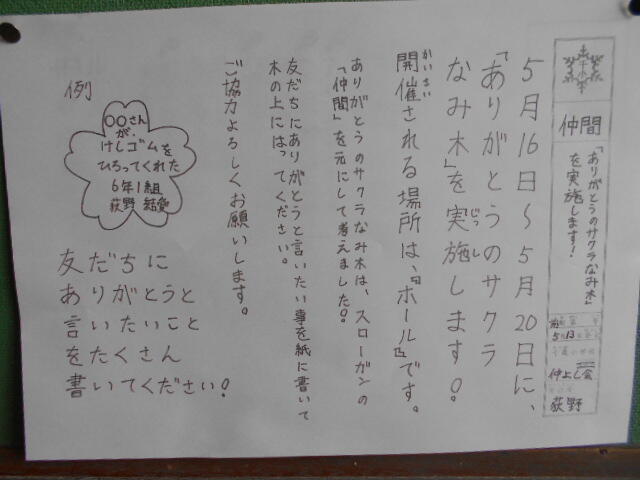 仲間
「ありがとうのサクラなみ木」
を実施します！
5月13日
仲よし会
荻野
5月16日〜5月20日に、
「ありがとうのサクラ
なみ木」を実施します！
じっし
開催される場所は、「ホール」です。
かいさい
ありがとうのサクラなみ木は、スローガンの
「仲間」を元にして考えました！
友だちにありがとうと言いたい事を紙に書いて
木の上にはってください。
ご協力よろしくお願いします。
例
〇〇さん
が、
けしゴムを
ひろってくれた
6年1組
荻野
友だちに
ありがとうと
言いたいこと
をたくさん
書いてください！